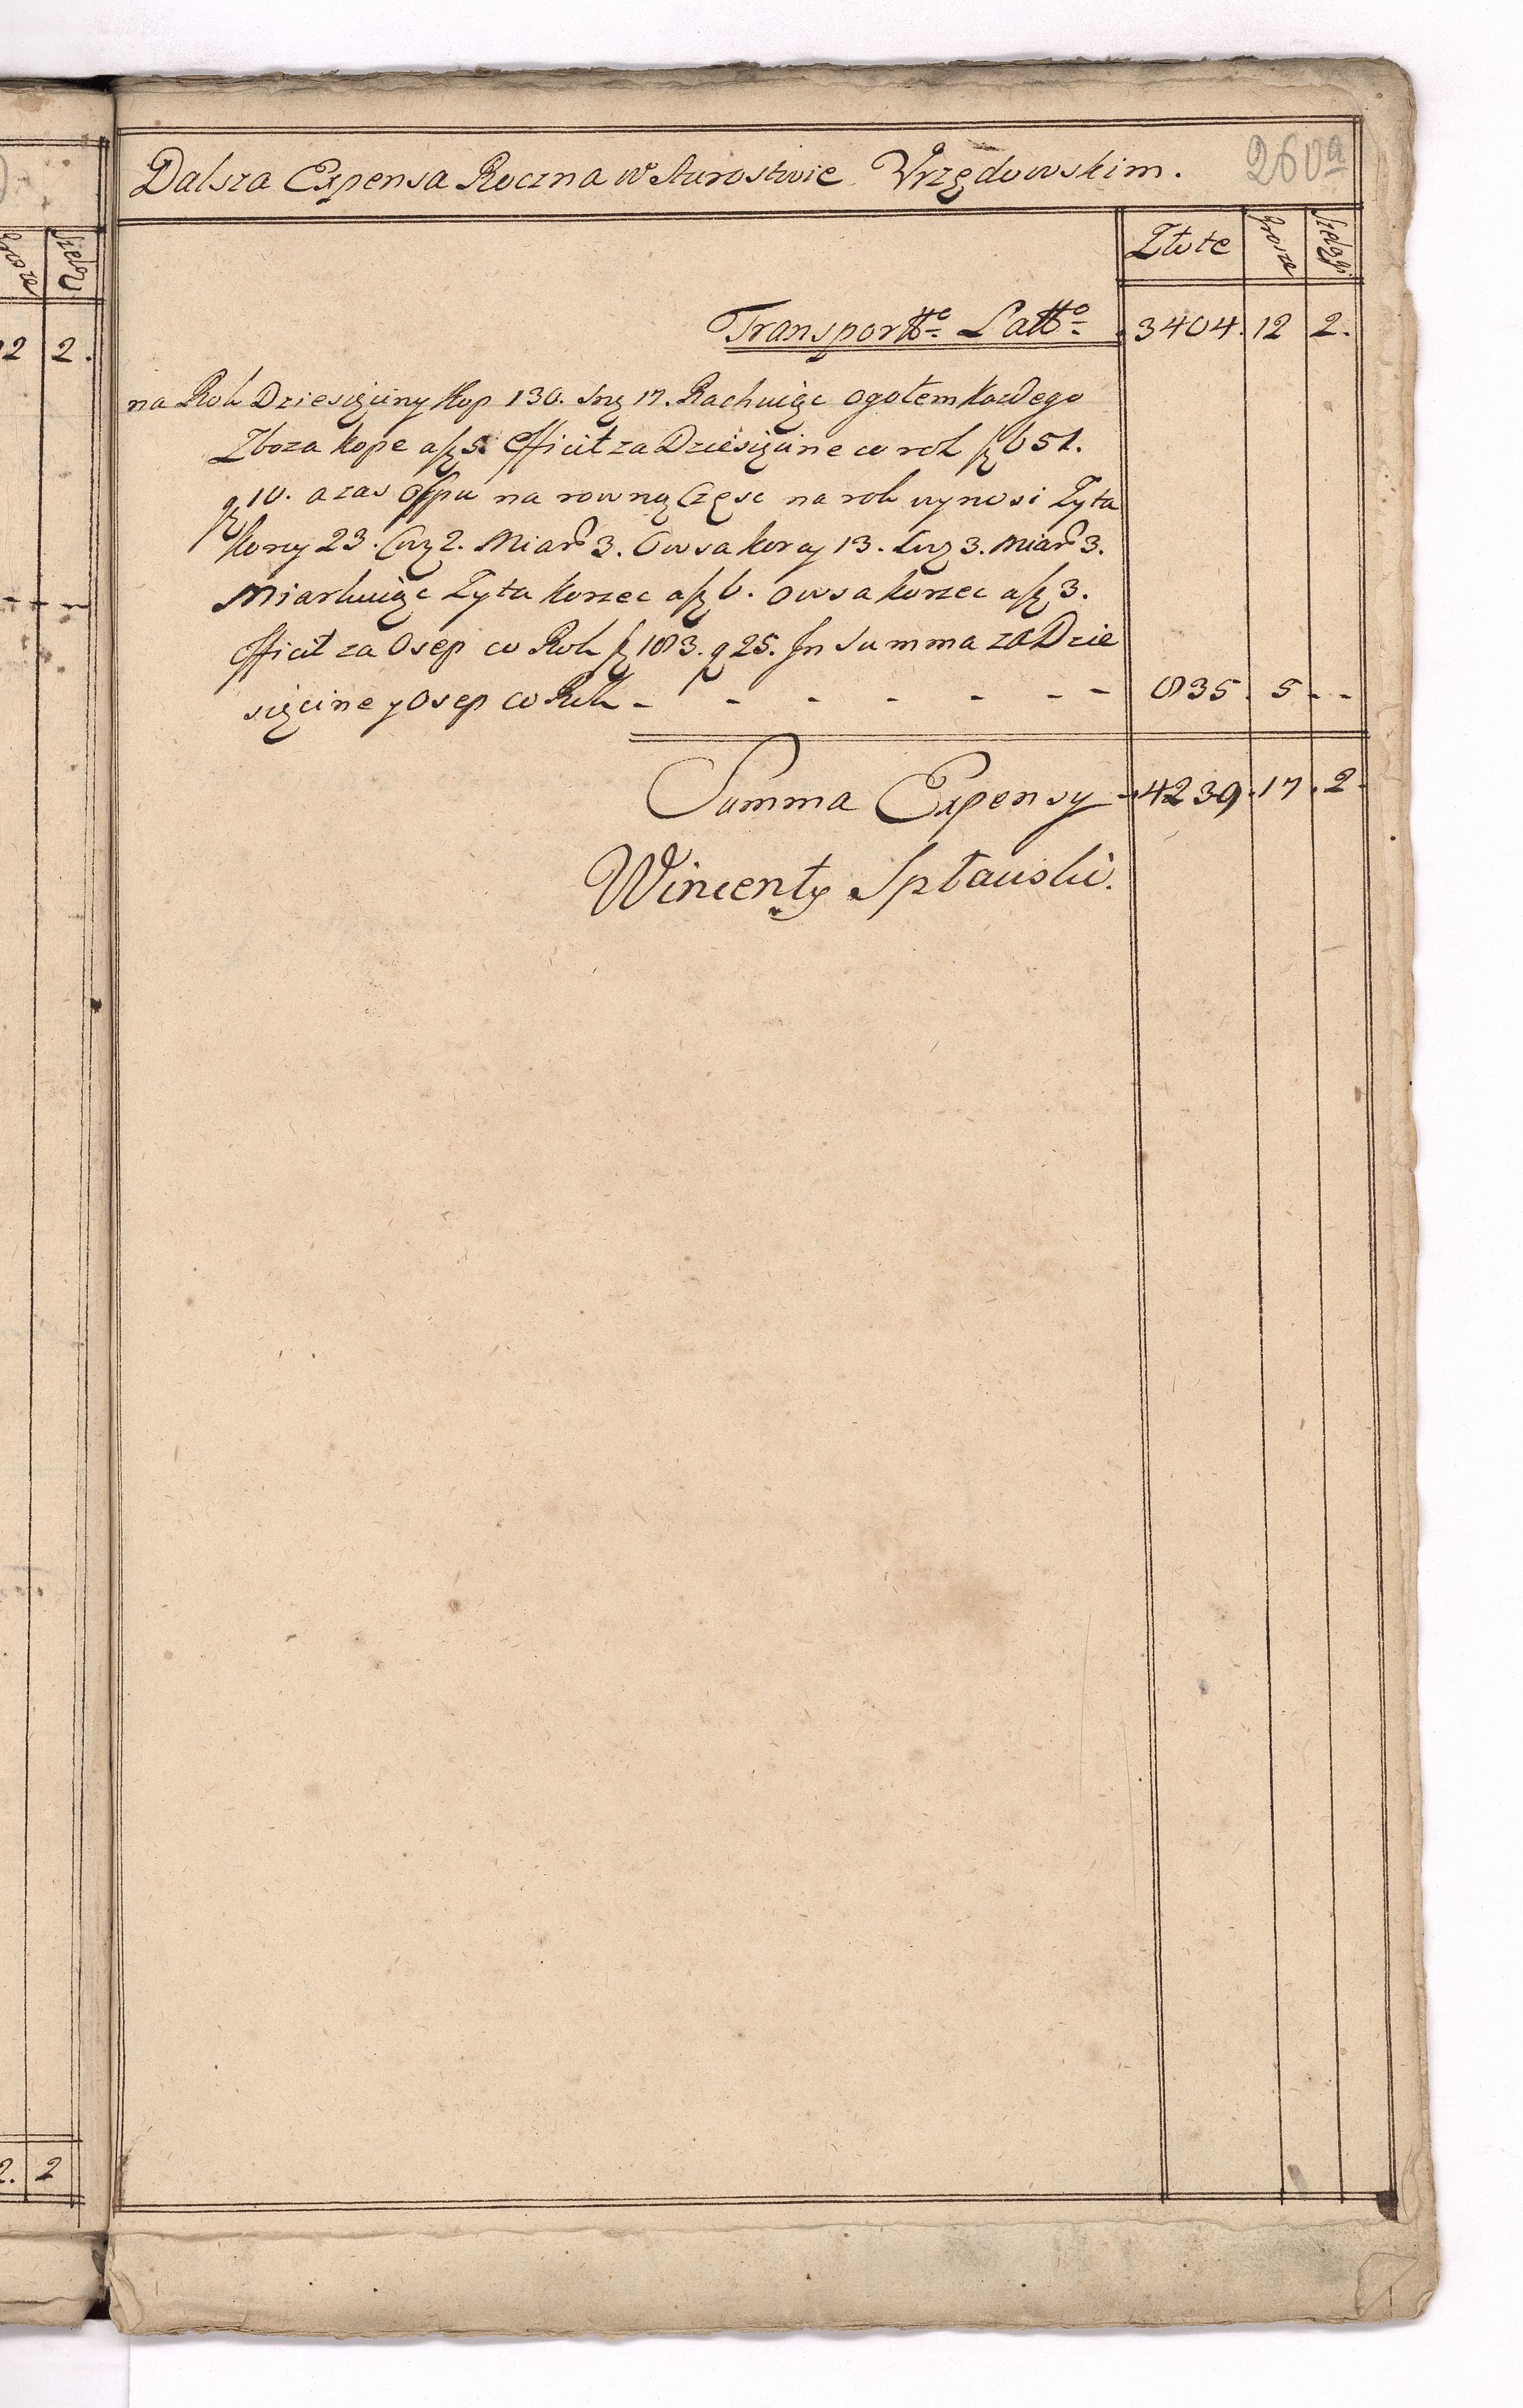 Dalsza Expensa Roczna w Starostwie Vrzędowskim. 260a
Złote Grosze Szelągi
Transportto Latto 3404. 12 2.
na Rok Dziesięciny Kop 130. Sng 17. Rachuiąc ogołem kazdego
Zboza kopę a fz 5. Efficit za Dziesięcinę co rok fz 651.
gz 10. a zas Ospu na rowną Częsc na rok wynosi Zyta
Korcy 23. Cwz 2. Miar 3. Owsa korcy 13. Cwz 3. Miar 3.
Miarkuiąc Zyta korzec a fz 6. Owsa korzec a fz 3.
Efficit za Osep co Rok fz 183. g 25. In Summa za Dzie
sięcinę y Osep co Rok - - - - - - - 835. 5 - -
Summa Expensy - 4239. 17. 2.
Wincenty Spławski.
Grosze Szelągi
12 2.
2. 2